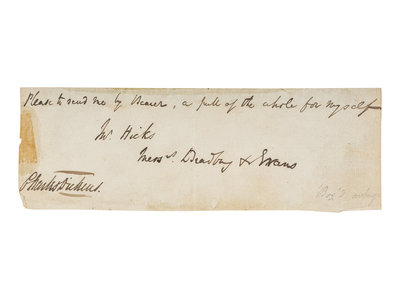 Please to send me by Bearer, a pull of the whole for myself
Mr. Hicks
Messrs. Bradbury & Evans
Charles Dickens.